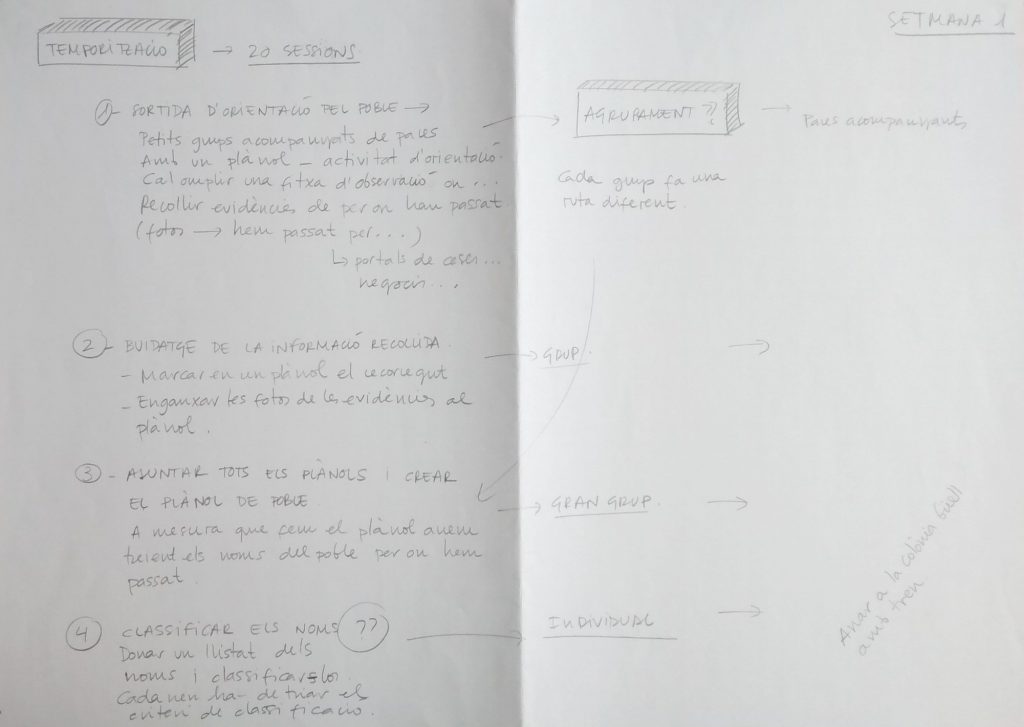 SETMANA 1
TEMPORITZACIÓ → 20 SESSIONS.
1- SORTIDA D'ORIENTACIÓ PEL POBLE →
Petits grups acompanyats de pares
Amb un plànol - activitat d'orientació.
Cal omplir una fitxa d'observació on ...
Recollir evidències de per on han passat.
(fotos → hem passat per...)
↳ portals de cases...
negocis...
AGRUPAMENT ?? → Pares acompanyants
Cada grup fa una
ruta diferent.
2- BUIDATGE DE LA INFORMACIÓ RECOLLIDA.
- Marcar en un plànol el recorregut
- Enganxar les fotos de les evidències al
plànol.
→ GRUP. →
3- AJUNTAR TOTS ELS PLÀNOLS I CREAR
EL PLÀNOL DE POBLE
A mesura que fem el plànol anem
traient els noms del poble per on hem
passat.
→ GRAN GRUP. →
4 CLASSIFICAR ELS NOMS ??
Donar un llistat dels
noms i classificar-los.
Cada nen ha de triar el
criteri de classificació.
→ INDIVIDUAL →
Anar a la colònia Güell
amb tren